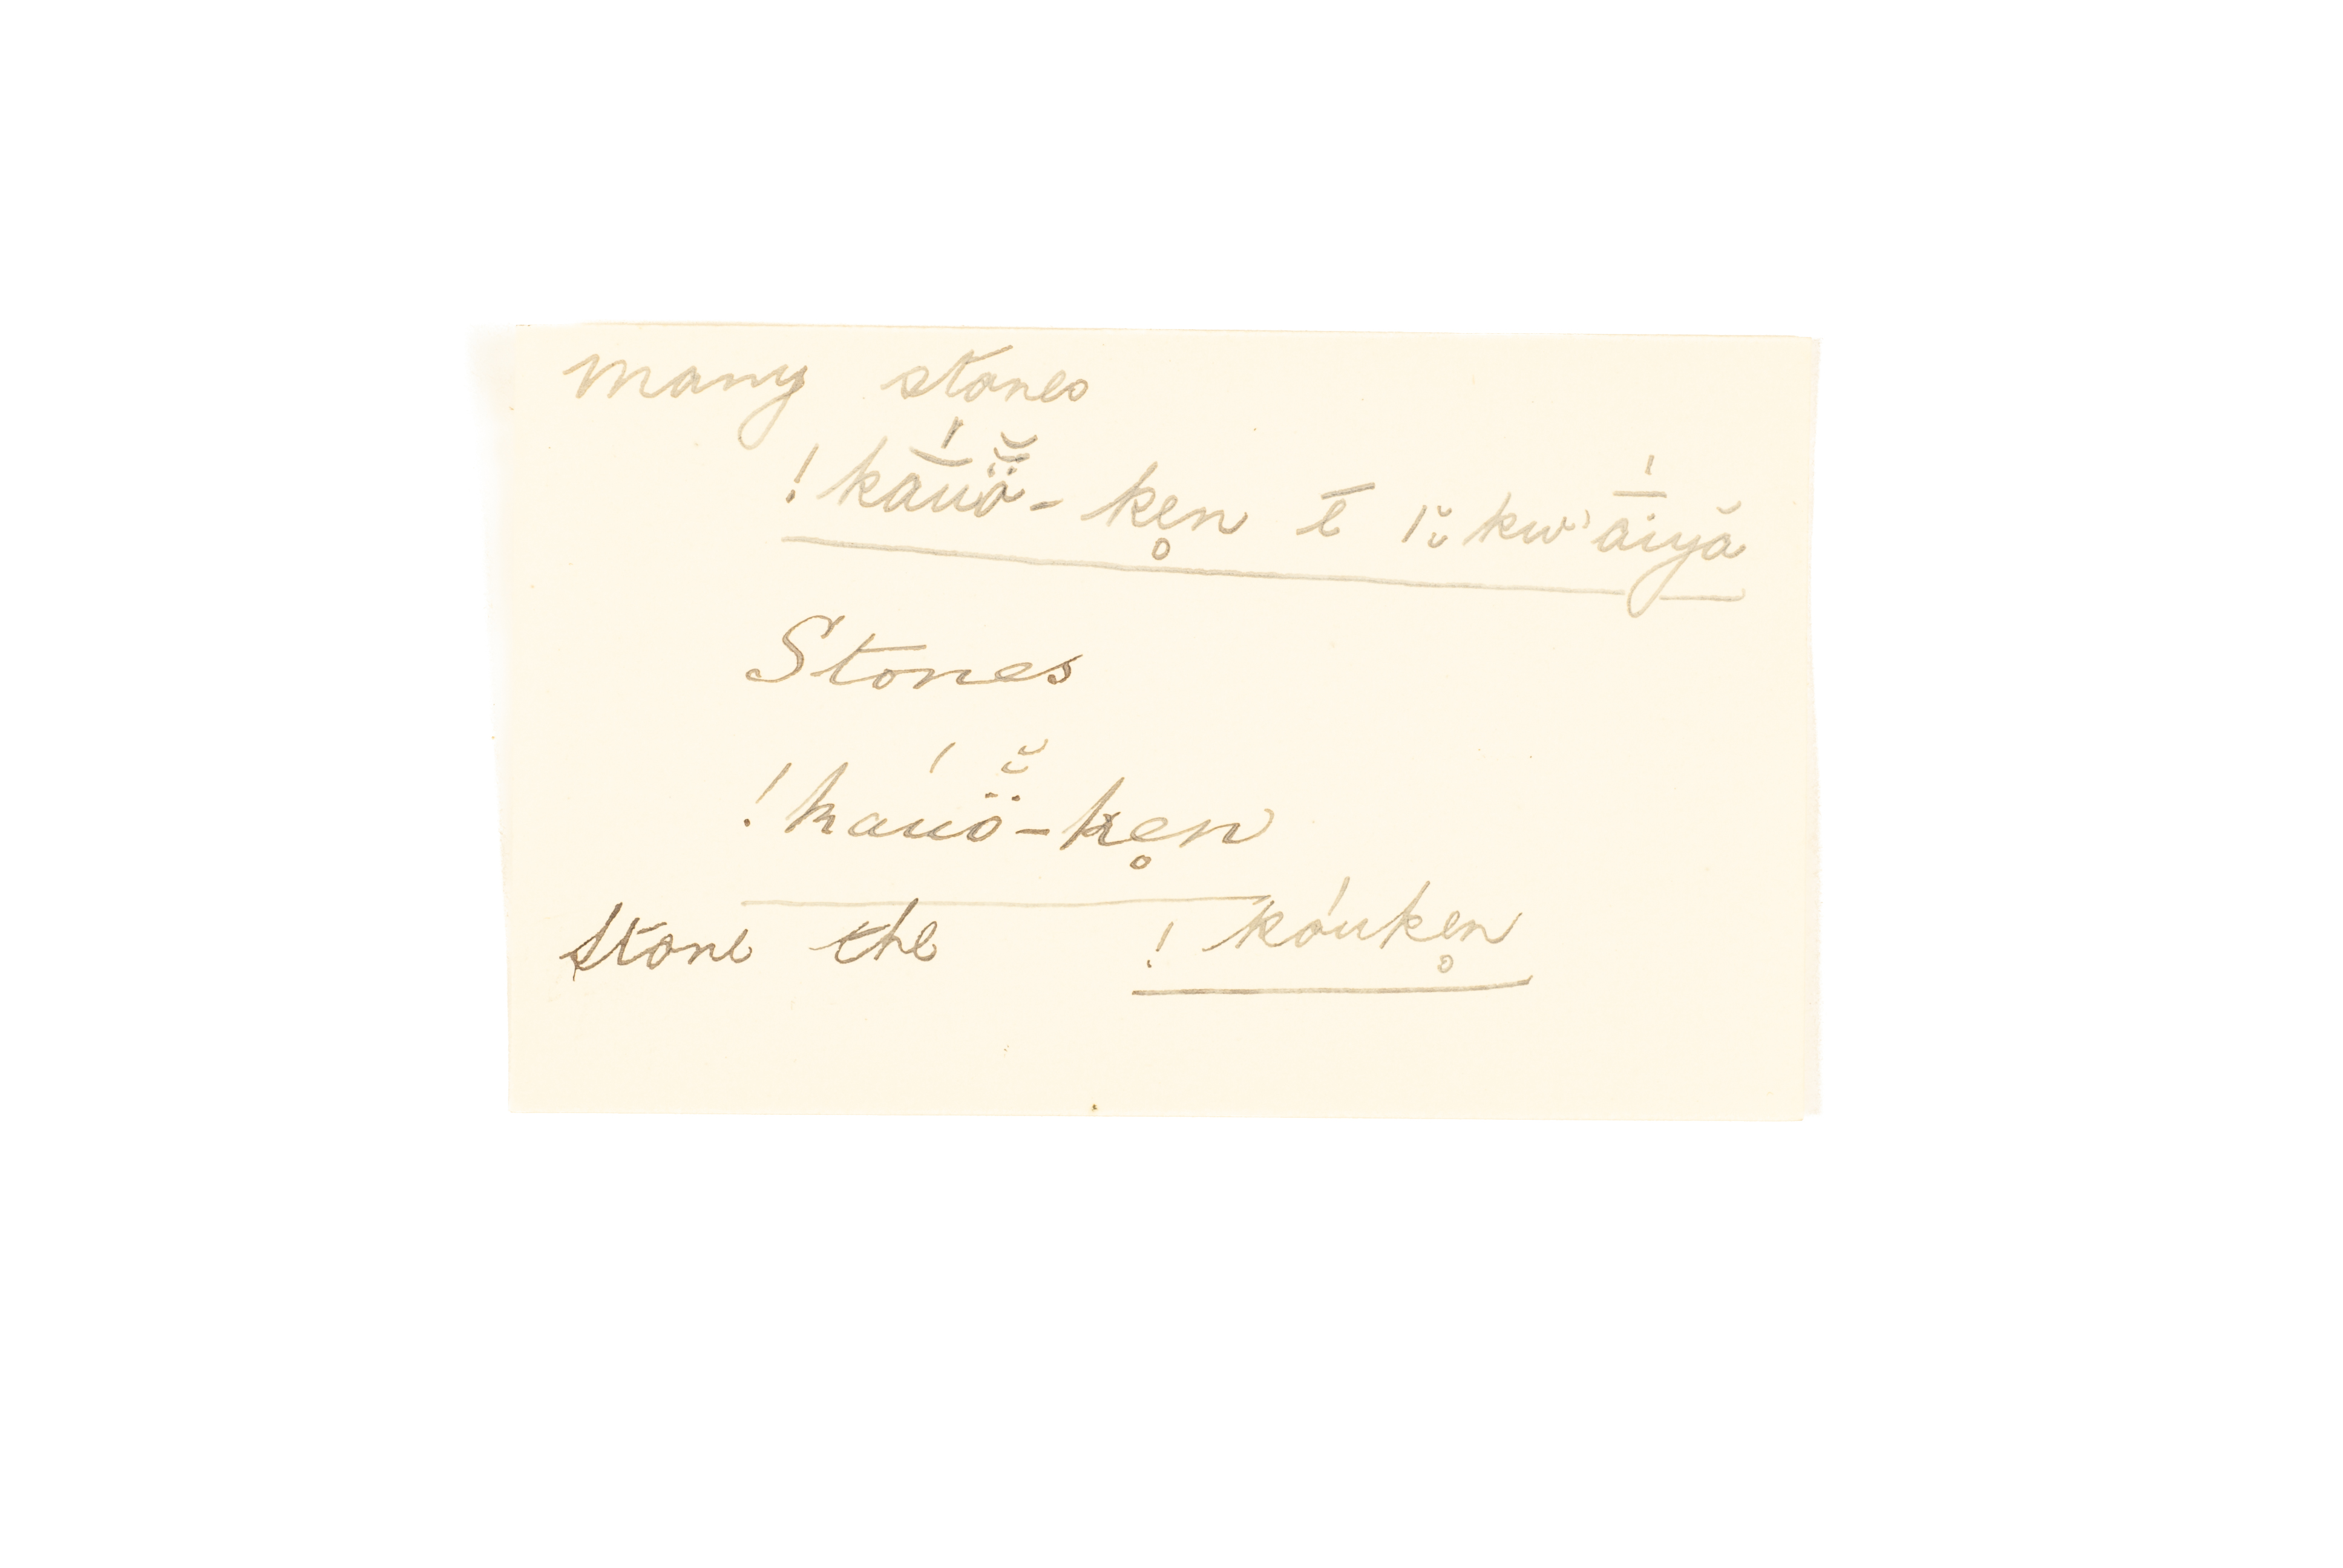 many stones
!kā́uö̆̆-ken̥ ē |̆̆kw'ā́iyă
Stones
!káuö̆̆-ken̥
Stone the !kóuken̥